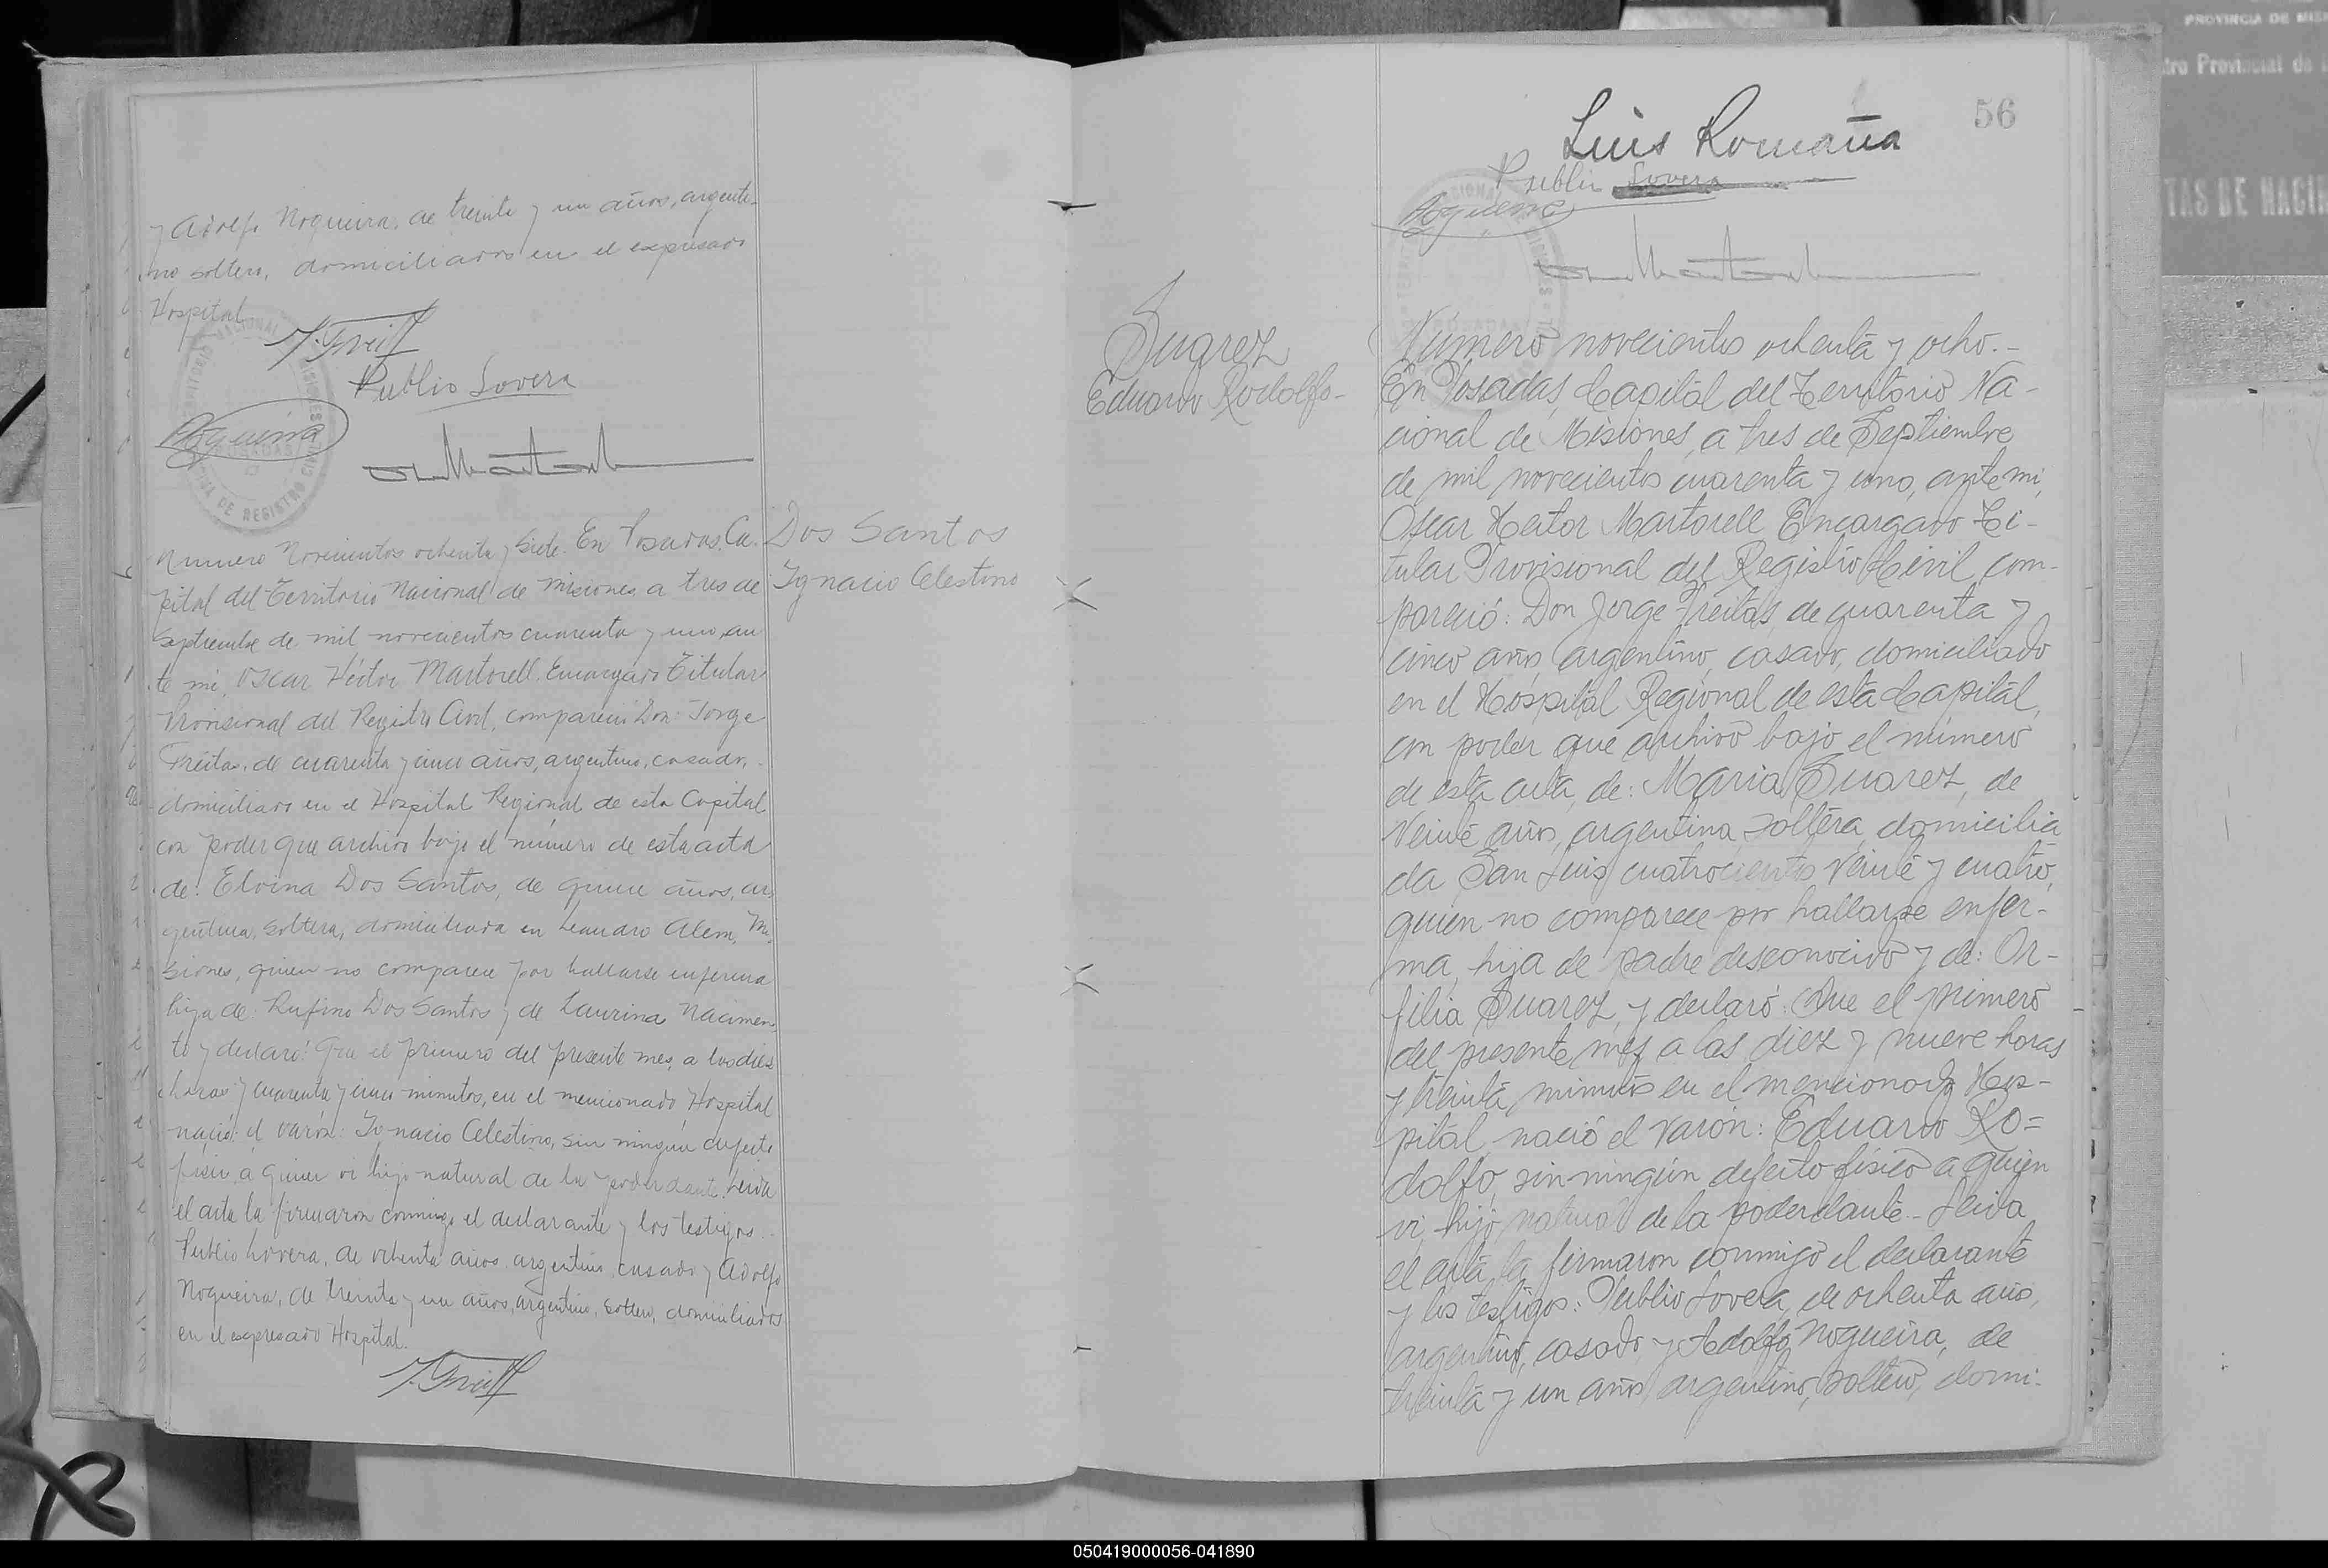 y Adolfo Nogueira, de treinta y un años, argenti-
no soltero, domiciliados en el expresado
Hospital
J. Freit
Publio Lovera
Nogueira
TERRITORIO NACIONAL MISIONES
POSADAS
OFICINA DE REGISTRO CIVIL
Numero Novecientos ochenta y siete. En Posadas, Ca-
pital del Territorio Nacional de Misiones a tres de
Septiembre de mil novecientos cuarenta y uno, an
te mi, Oscar Héctor Martorell Encargado Titular
Provisional del Registro Civil, compareció Don: Jorge
Freitas, de cuarenta y cinco años, argentino, casado,
domiciliado en el Hospital Regional de esta Capital
con poder que archivo bajo el número de esta acta
de: Elvina Dos Santos, de quince años, ar-
gentina, soltera, domiciliada en Leandro Alem, Mi-
siones, quien no comparece por hallarse enferma
hija de: Rufino Dos Santos y de Laurina Nacimen-
to y declaró: Que el primero del presente mes, a las diez
horas y cuarenta y cinco minutos, en el mencionado Hospital
nació: el varón: Ignacio Celestino, sin ningún defecto
físico, a quien vi hijo natural de la poderdante. Leida
el acta la firmaron conmigo el declarante y los testigos
Publio Lovera, de ochenta años, argentino, casado y Adolfo
Nogueira, de treinta y un años, argentino, soltero, domiciliados
en el expresado Hospital.
J. Freit
Dos Santos
Ignacio Celestino
56
Luis Romaña
Publio Lovera
Nogueira
Suarez
Eduardo Rodolfo-
Número novecientos ochenta y ocho.-
En Posadas, Capital del Territorio Na-
cional de Misiones, a tres de Septiembre
de mil novecientos cuarenta y uno, ante mi,
Oscar Hector Martorell Encargado Ti-
tular Provisional del Registro Civil com-
pareció: Don Jorge Freitas, de cuarenta y
cinco años, argentino, casado, domiciliado
en el Hospital Regional de esta Capital,
con poder que archivo bajo el número
de esta acta, de: Maria Suarez, de
veinte años, argentina, soltera, domicilia
da San Luis cuatrocientos veinte y cuatro,
quien no comparece por hallarse enfer-
ma, hija de padre desconocido y de: Or-
filia Suarez, y declaró: Que el primero
del presente mes a las diez y nueve horas
y treinta minutos en el mencionado Hos-
pital, nació el varón: Eduardo Ro=
dolfo, sin ningún defecto físico a quien
vi, hijo natural de la poderdante.- Leida
el acta, la firmaron conmigo el declarante
y los testigos: Publio Lovera, de ochenta años,
argentino, casado, y Adolfo Nogueira, de
treinta y un años, argentino, soltero, domi-
PROVINCIA DE MISI
tro Provincial de
TAS DE NACIM
050419000056-041890